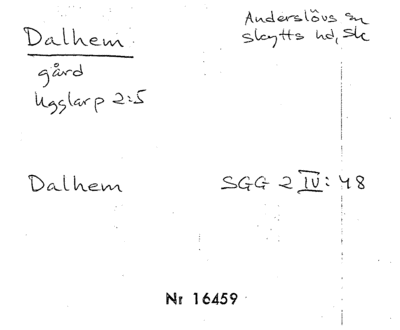 Dalhem
Anderslövs sn
Skytts hd, Sk
gård
Ugglarp 2:5
Dalhem
SGG 2 IV: 48
Nr 16459